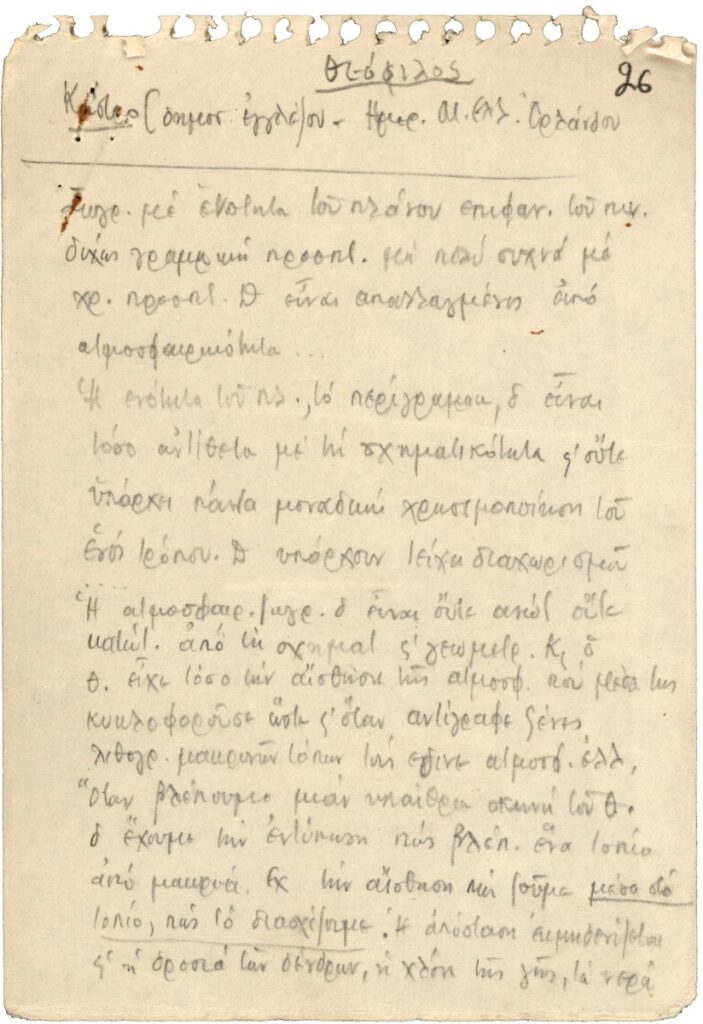 Θεόφιλος
26
Κάστρο (δημοσ. ἐγγλέζου - Ημερ. Μ. Ελλ. Ὀρλάνδου
Ζωγρ. μέ ἑνότητα τοῦ πλάνου επιφαν. τοῦ πιν.
δίχως γραμμική προοπτ. μά πολύ συχνά μέ
χρ. προοπτ. Δ εἶναι απαλλαγμένος ἀπό
ατμοσφαιρικότητα ...
Ἡ ενότητα τοῦ πλ., τό περίγραμμα, δ εἶναι
τόσο αντίθετα μέ τή σχηματικότητα ϛ' οὔτε
ὑπάρχει πάντα μοναδική χρησιμοποίηση τοῦ
ἑνός τρόπου. Δ υπάρχουν τείχη διαχωρισμοῦ
....
Ἡ ατμοσφαιρ. ζωγρ. δ εἶναι οὔτε ανώτ οὔτε
κατώτ. ἀπό τή σχηματ ϛ' γεωμετρ. Κι ὁ
Θ. εἶχε τόσο τήν αἴσθηση τῆς ατμοσφ. πού μέσα της
κυκλοφοροῦσε ὥστε ϛ' ὅταν αντίγραφε ξένες
λιθογρ. μακρινῶν τόπων τούς έδινε ατμοσφ. ἑλλ,
Ὅταν βλέπουμε μιάν υπαίθρια σκηνή τοῦ Θ.
δ ἔχουμε τήν ἐντύπωση πώς βλέπ. ἕνα τοπίο
ἀπό μακρυά. Εχ τήν αἴσθηση πώς ζοῦμε μέσα στό
τοπίο, πώς τό διασχίζουμε. Ἡ ἀπόσταση ἐκμηδενίζεται
ϛ' ἡ δροσιά τῶν δένδρων, ἡ χλόη τῆς γῆς, τά νερά